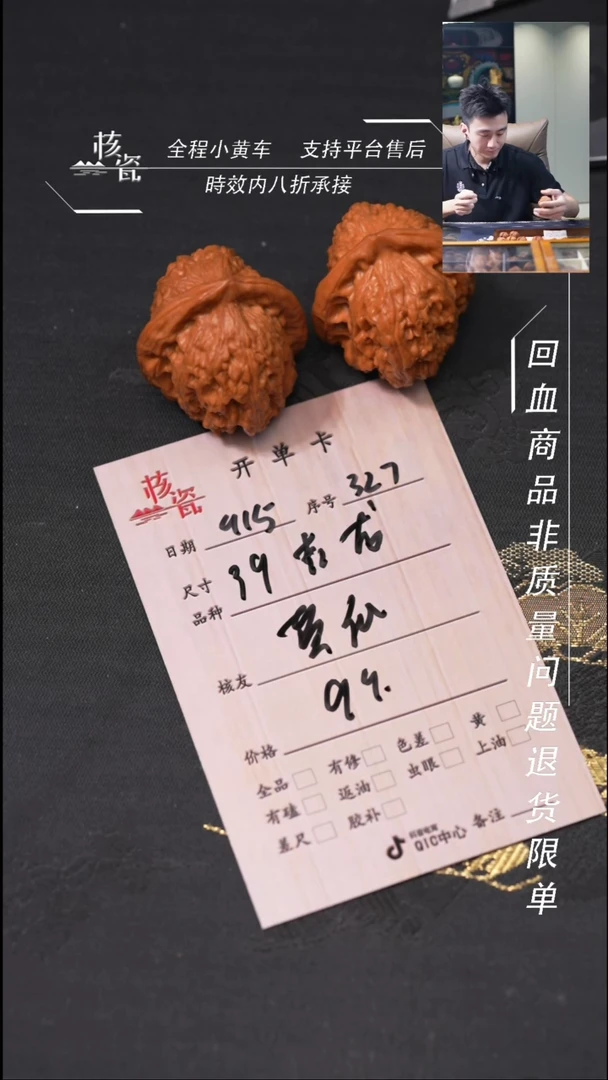 核瓷
全程小黄车 支持平台售后
時效内八折承接
回血商品非质量问题退货限单
核瓷
开单卡
日期 915 序号 327
尺寸 39
品种
核友 黄瓜
价格 99.
全品 有修 色差 黄
有磕 返油 虫眼 上油
差尺 胶补
抖音电商
QIC中心 备注